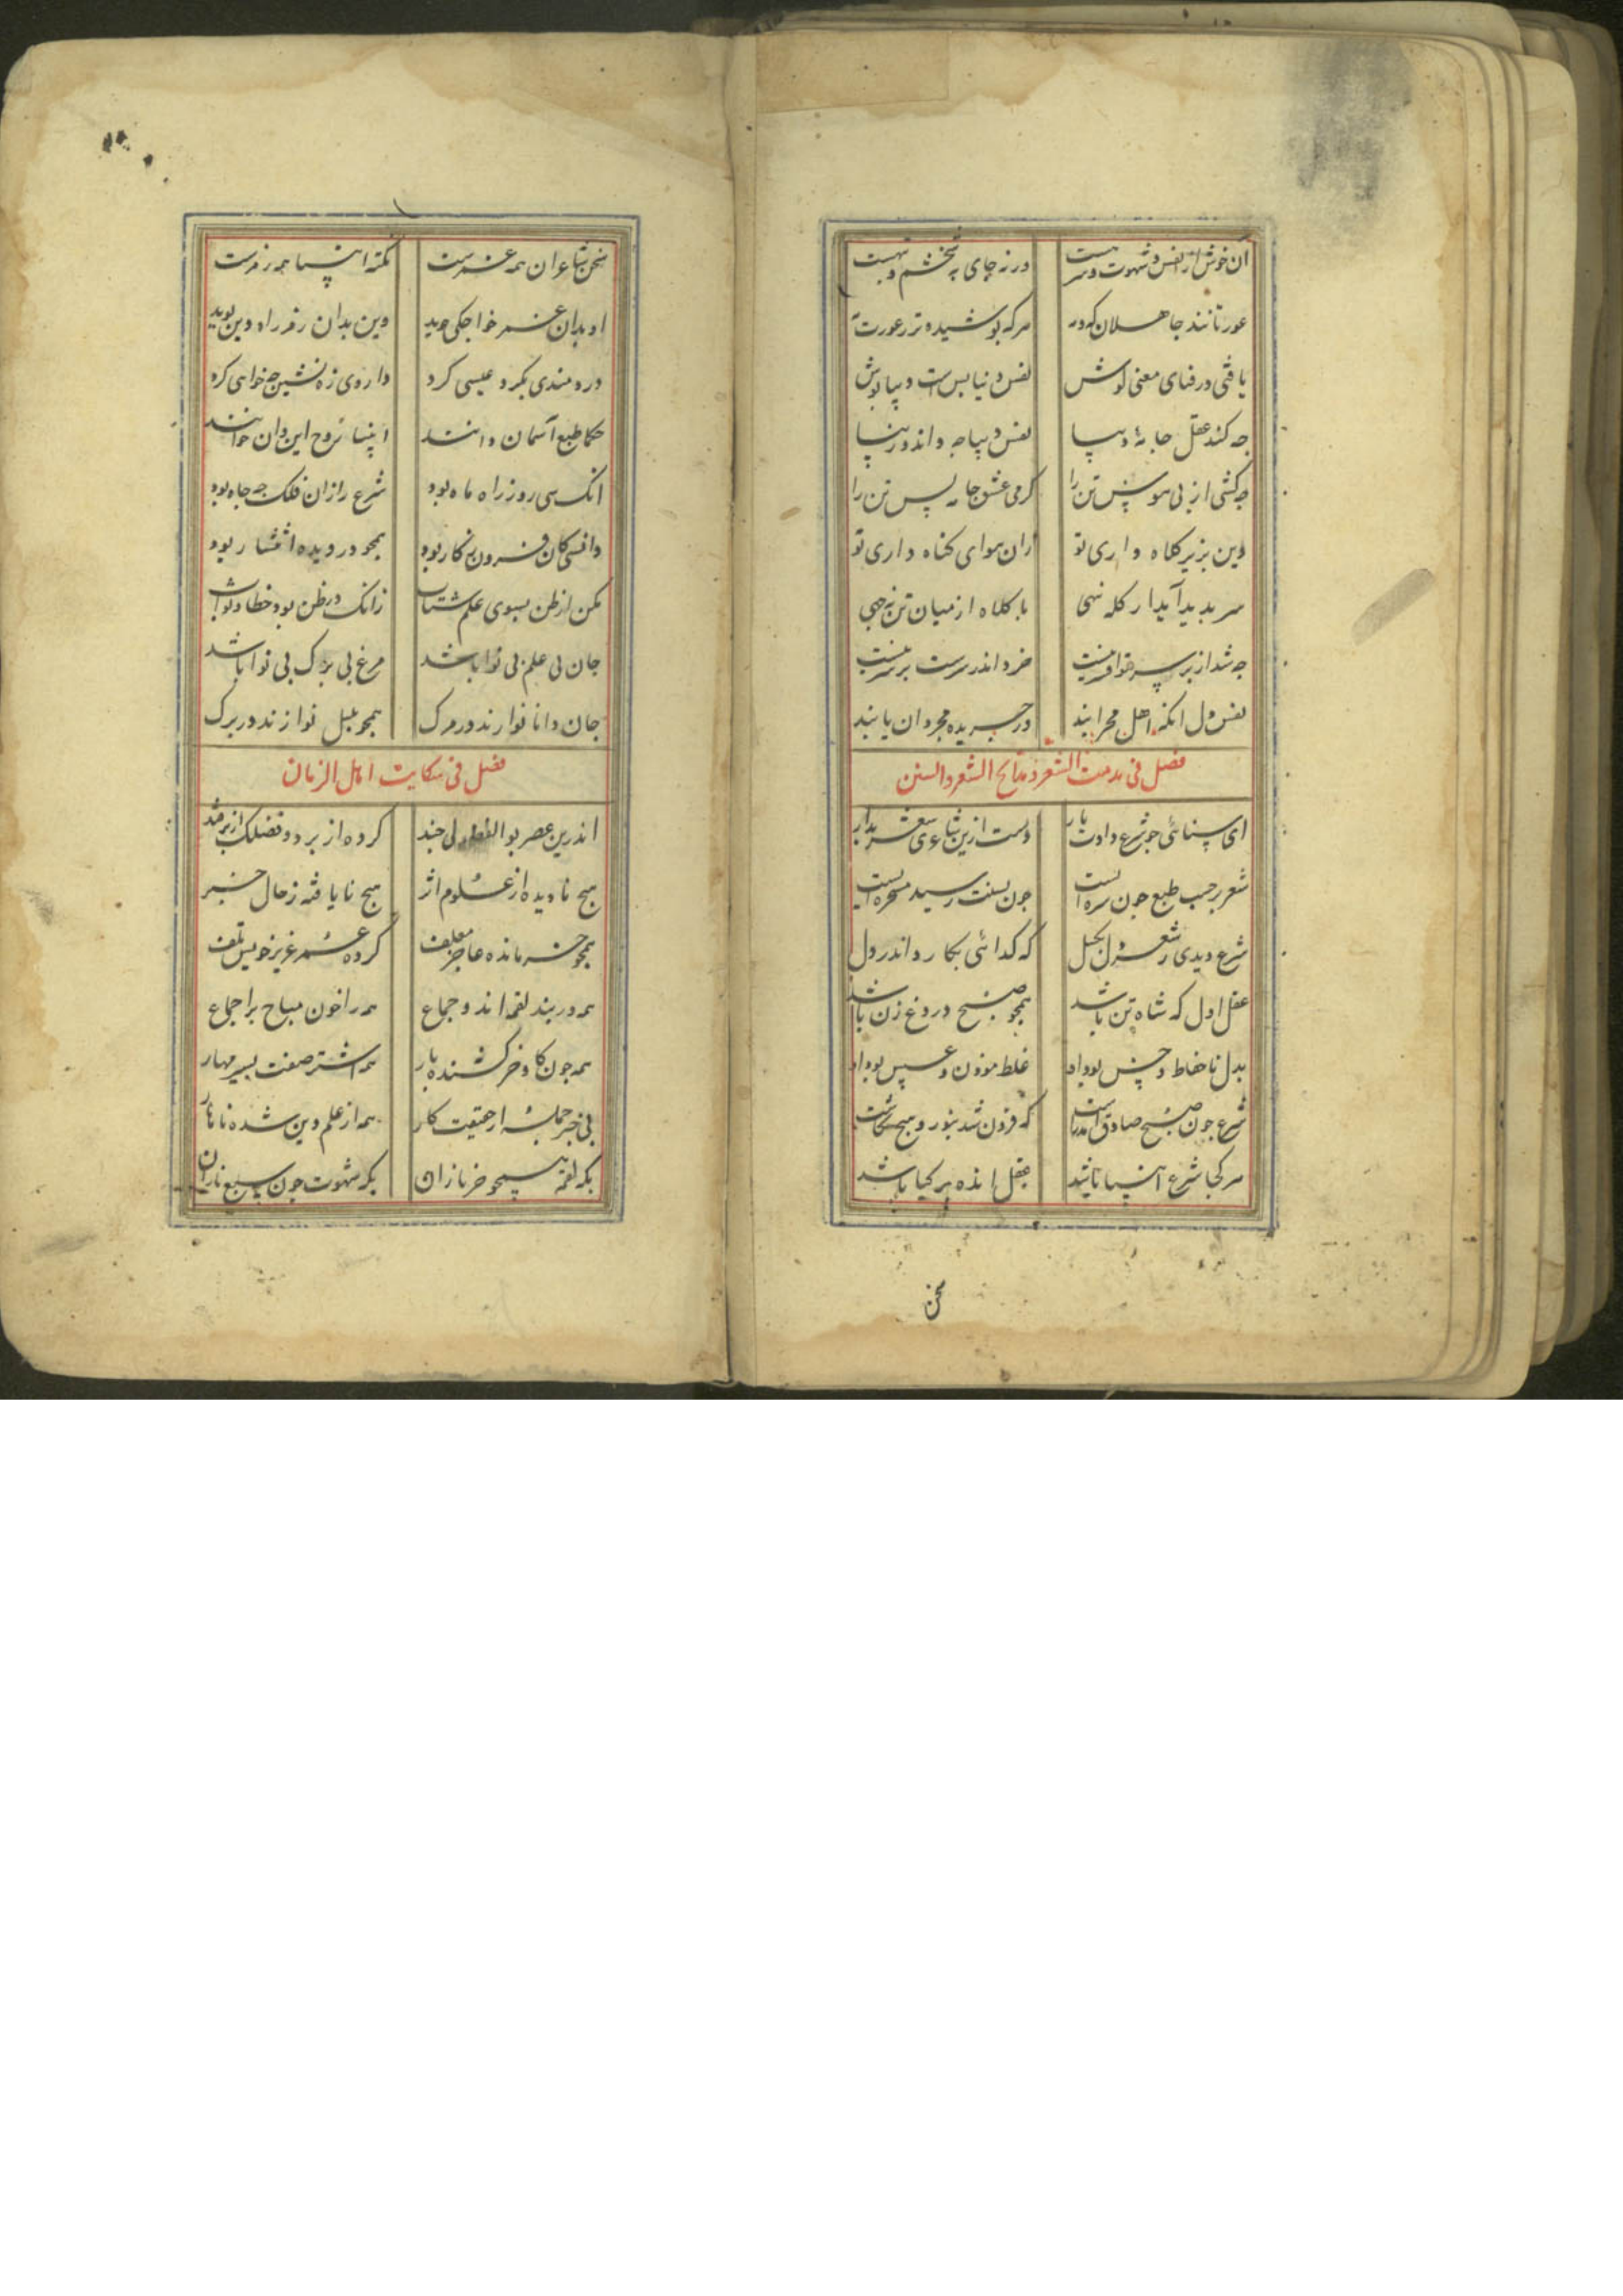 آن خوش از نفس و شهوت و سر هست ورنه جای به خشم و نهست
عورتانند جاهلان که و مه هر که پوشیده تر ز عورت به
یافتی در قبای معنی کوش نفس دنیا بس است دیبا پوش
چه کند عقل جامهٔ دیبا نفس دیباجه داند و زیبا
چه کشی از پی هوس تن را گرمی عشق جامه بس تن را
دین بزیر کلاه داری تو زان هوای گناه داری تو
سر بدید آید ار کله نهی با کلاه از میان تن نجهی
چه شد از بر سر تو افسر نیست خرد اندر سرست بر سر نیست
نفس دل آنکه اهل محرابند در جریده مجردان یابند
فصل فی مذمت الشعر و مدایح الشعر و السنن
ای سنائی چو شرع دادت بار دست ازین شاعری و شعر بدار
شعر بر حسب طبع جون سره ایست جون بسنت رسید مسخره ایست
شرع دیدی ز شعر دل بگسل که گدائی نگارد اندر دل
عقل اول که شاه تن باشد همجو صبح دروغ زن باشد
بدل ناحفاظ و جس بود او غلط موذن و عسس بود او
شرع جون صبح صادق آمد راست که فزون شد بنور و هیچ نکاست
هر کجا شرع انبیا باشد عقل اندر هر کیا باشد
سخن
سخن شاعران همه غمزست نکته انبیا همه رمزست
او بدان غمز خواجگی جوید وین بدان رمز راه دین پوید
دردمندی بگرد عیسی گرد داروی زه نشین چه خواهی کرد
حکما طبع آسمان دانند انبیا روح این و آن خوانند
آنک سی روز راه ماه بود شرع را زان فلک چه جاه بود
دانشی کان فزون نه کار بود همجو در دیده انتشار بود
مکن از ظن بسوی علم شتاب زانک در ظن بود خطا و ثواب
جان بی علم بی نوا باشد مرغ بی برگ بی نوا باشد
جان دانا نوا زند در مرگ همجو بلبل نوا زند در برگ
فصل فی شکایت اهل الزمان
اندرین عصر بو الفضولی چند کرده از بر دو فضلک از بر قند
هیچ نادیده از علوم اثر هیچ نایافته ز حال خبر
همجو خر مانده عاجز علف کرده عمر عزیز خویش تلف
همه در بند لقمه اند و جماع همه را خون مباح بر اجماع
همه جون گاو و خر کشنده بار همه اشتر صفت بسیر مهار
بی خبر جمله از حقیقت کار همه از علم دین شده ناهار
بگه لقمه همجو خر تازان بگه شهوت جون سبع نازان